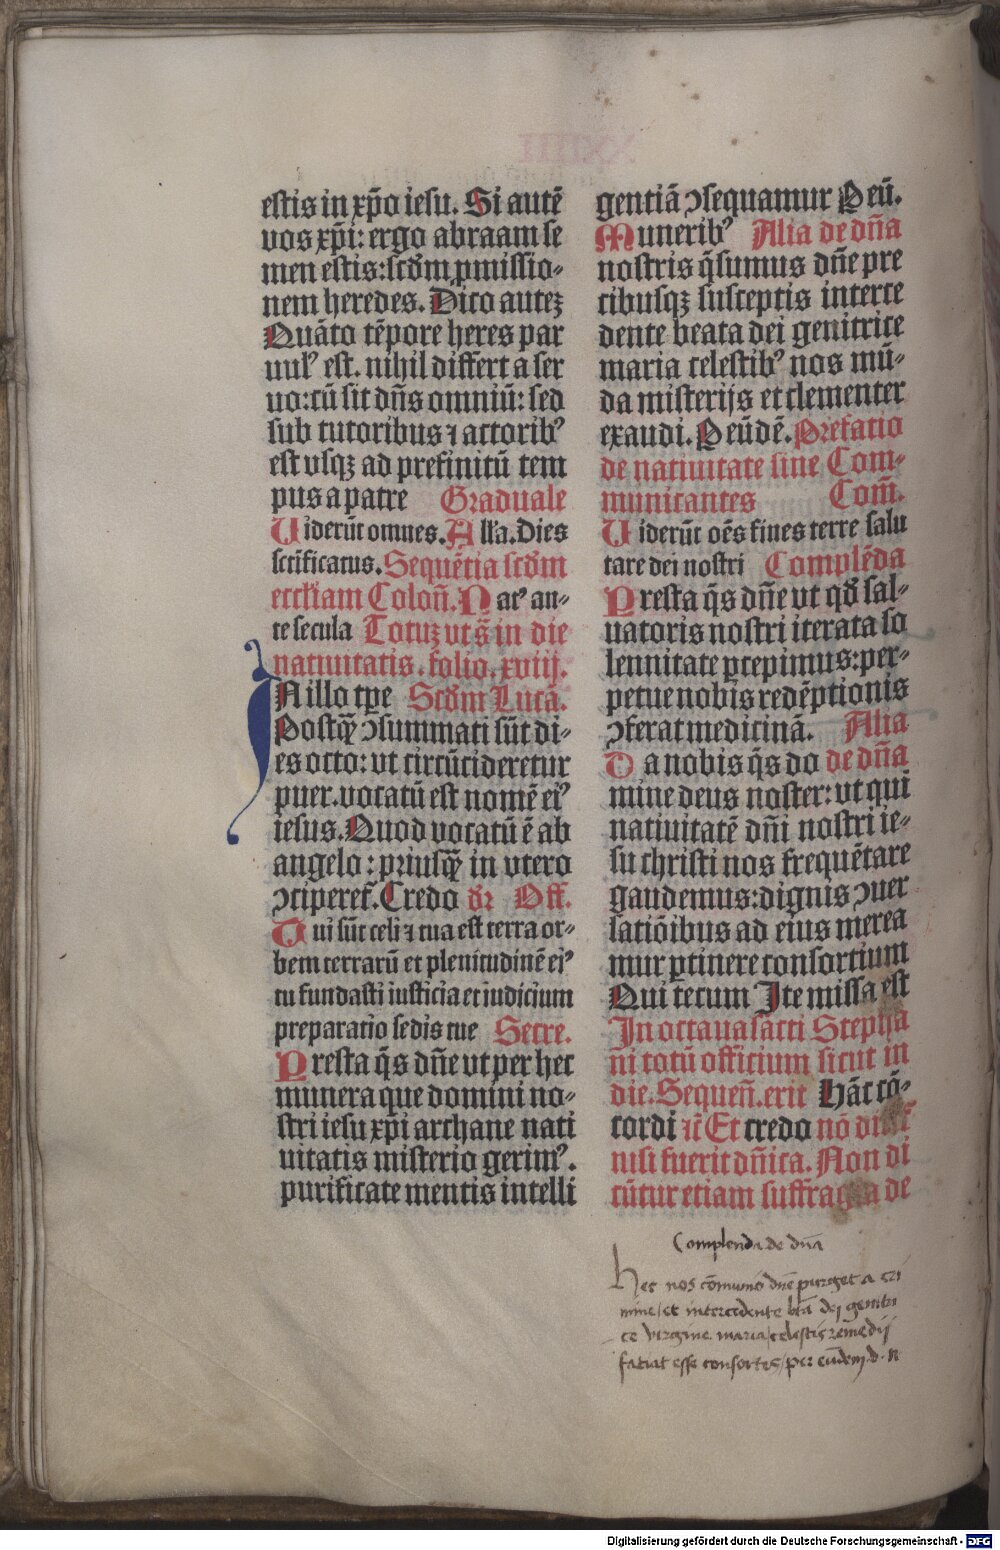 estis in xp̄o iesu. Si autē
vos xp̄i: ergo abraam se
men estis: scd̄m ꝓmissio-
nem heredes. Dico autez
Quāto tēpore heres par
uulꝰ est. nihil differt a ser
uo: cū sit dn̄s omniū: sed
sub tutoribus ⁊ actoribꝰ
est vsqꝫ ad prefinitū tem
pus a patre Graduale
Uiderūt omnes. Alľa. Dies
sctificatus. Sequētia scd̄m
eccľiam Colon̄. Natꝰ an-
te secula Totuz vt s̄ in die
natiuitatis. folio. xviij.
In illo tp̄e Scd̄m Lucā.
Postq̄ ↄsummati sūt di-
es octo: ut circūcideretur
puer. vocatū est nomē eiꝰ
iesus. Quod vocatū ē ab
angelo: priusq̄ in vtero
ↄciperet̄. Credo dr̄ Off.
Tui sūt celi ⁊ tua est terra or-
bem terrarū et plenitudinē eiꝰ
tu fundasti iusticia et iudicium
preparatio sedis tue Secre.
Presta q̄s dn̄e ut per hec
munera que domini no-
stri iesu xp̄i archane nati
uitatis misterio gerimꝰ.
purificate mentis intelli
gentiā ↄsequamur Peū.
Muneribꝰ Alia de dn̄a
nostris q̄sumus dn̄e pre
cibusqꝫ susceptis interce
dente beata dei genitrice
maria celestibꝰ nos mū-
da misterijs et clementer
exaudi. Peūdē. Prefatio
de natiuitate sine Com-
municantes Com̄.
Uiderūt oēs fines terre salu
tare dei nostri Complēda
Presta q̄s dn̄e ut qd̄ sal-
uatoris nostri iterata so
lennitate ꝑcepimus: per-
petue nobis redēptionis
ↄferat medicinā. Alia
Da nobis q̄s do de dn̄a
mine deus noster: ut qui
natiuitatē dn̄i nostri ie-
su christi nos frequētare
gaudemus: dignis ↄuer
satiōibus ad eius merea
mur ꝑtinere consortium
Qui tecum Ite missa est
In octaua sācti Stepha
ni totū officium sicut in
die. Sequen̄. erit Hāc cō-
cordi ⁊c̄ Et credo nō
nisi fuerit dn̄ica. Non di
cūtur etiam suffragia de
Complenda de dn̄a
Hec nos cōmunio dn̄e purget a cri
mine / et intercedente btā dej genitri
ce virgine maria / celestis remedij
faciat esse consortes / per eūdem d. n
Digitalisierung gefördert durch die Deutsche Forschungsgemeinschaft - DFG